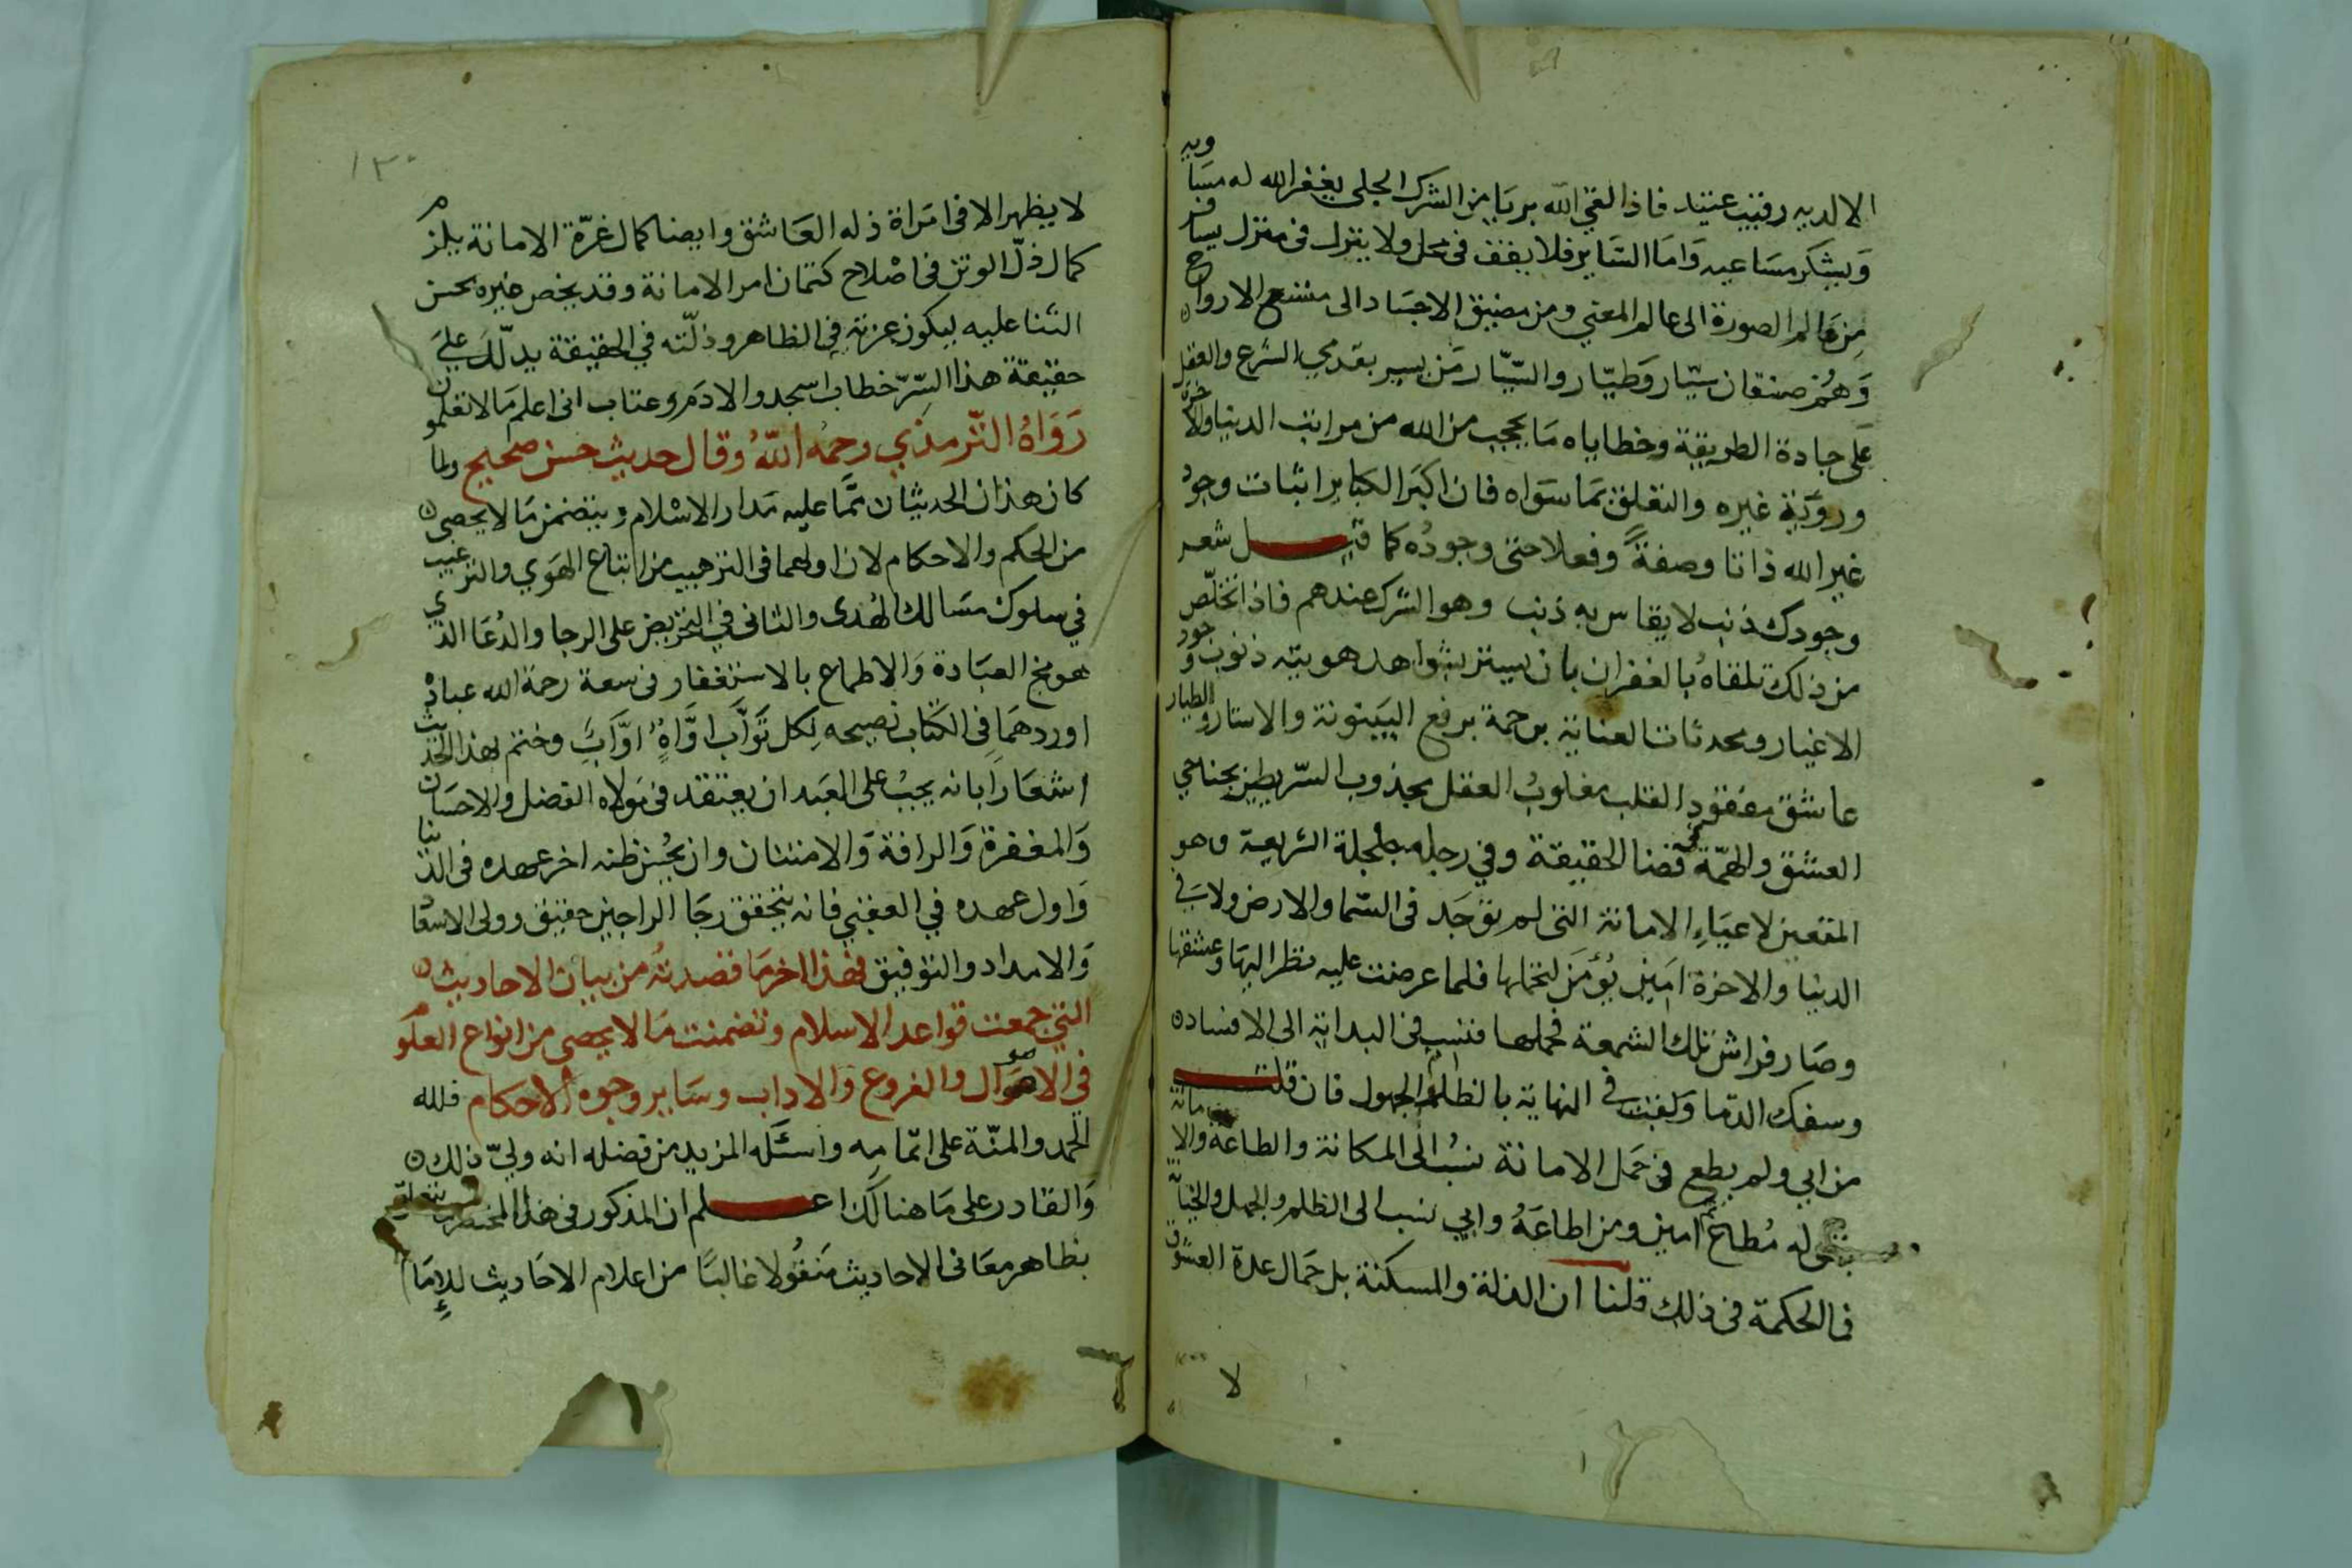 الا لديه رقيب عتيد فاذا لقي الله بريا من الشرك الجلي يغفر الله له مساويه
ويشكر مساعيه واما السّاير فلا يقف في محل ولا ينزل في منزل يسافر
من عالم الصورة الى عالم المعنى ومن مضيق الاجساد الى متسع الارواح
وهُم صنفان سيّار وطيّار والسّيّار من يسير بقدمي الشرع والعقل
على جادة الطريقة وخطاياه ما يحجب من الله من مراتب الدنيا والاخرة
ورؤية غيره والتعلق بما سواه فان اكبر الكباير اثبات وجود
غير الله ذاتا وصفةً وفعلا حتى وجودُه كما قيل شعر
وجودك ذنب لا يقاس به ذنب وهو الشرك عندهم فاذا تخلّص
من ذلك تلقاهُ بالغفران بان يستر بشواهد هويته ذنوب وجود
الاغيار ومحدثات العناية برحمة برفع البينونة والاستار والطيار
عاشق مفقود القلب مغلوبُ العقل مجذوب السّر يطير بجناحي
العشق والهمّة في فضا الحقيقة وفي رجله جلجلة الشريعة وهو
المتعين لاعباءِ الامانة التى لم توجد في السّما والارض ولا في
الدنيا والاخرة امين يُؤمَن لتحملها فلما عرضت عليه نظر اليها وعشقها
وصَار فراش تلك الشمعة فحملها فنسب في البداية الى الافساد
وسفك الدما ولقب في النهاية بالظلوم الجهول فان قلت
من ابي ولم يطع في حمل الامانة نسبُ الى المكانة والطاعة والامانة
له مُطاع ثم امين ومن اطاعَهُ وابي نسب الى الظلم والجهل والخيانة
فما الحكمة في ذلك قلنا ان الذلة والمسكنة بل جمال عدة العشق
لا
١٣٠
لا يظهر الا في امراة ذله العَاشق وايضا كمال غرّة الامانة يلزم
كمال ذلّ الوتن في اصْلاح كتمان امر الامانة وقد يخص غيره بحسن
الثنا عليه ليكون عزته في الظاهر وذلّته في الحقيقة يدلّكَ عليَ
حقيقة هذا السِّرّ خطاب اسجدوا لادمَ وعتاب انى اعلم مَا لا تعلمون
رَوَاهُ التّرمذي رحمهُ اللّهُ وقال حديث حسن صحيح ولما
كان هذان الحديثان ممّا عليه مَدار الاسْلام ويتضمن مَا لا يحصى
من الحكم والاحكام لان اولهما في الترهيب من اتباع الهَوي والترغيب
في سلوك مسَالك الهُدى والثانى في التحريض على الرجا والدُعَا الذي
هو مخ العبَادة وَالاطماع بالاستغفار في سعة رحمة الله عبادْه
اوردهمَا في الكتاب نصيحه لِكل تَوَّاب اوَّاهٍ اوَّاب وختم بهذا الحديث
اشعَارًا بانه يجبُ على العَبد ان يعتقد في مَولاه الفضل والاحسَان
وَالمغفرة وَالرافة وَالامتنان وان يحُسن ظنه اخر عهده في الدنيا
وَاول عهده في العقبي فانه بتحقق رجَا الراجين حقيق وولى الاسعَاد
وَالامداد والتوفيق فهذا اخر مَا قصدتُه من بيان الاحاديث
التى جمعت قواعد الاسلام وتضمنت مَا لا يحصى من انواع العلوم
في الاصول والفروع والاداب وسَاير وجوه الاحكام فلله
الحمد والمنّة على اتمامِه واسئَله المزيد من فضله انه وليّ ذلك
وَالقادر على مَا هنالك اعلم ان المذكور في هذا المختصر يتعلق
بظاهر معَانى الاحاديث مَنقُولا غالبًا من اعلام الاحَاديث للإمَام